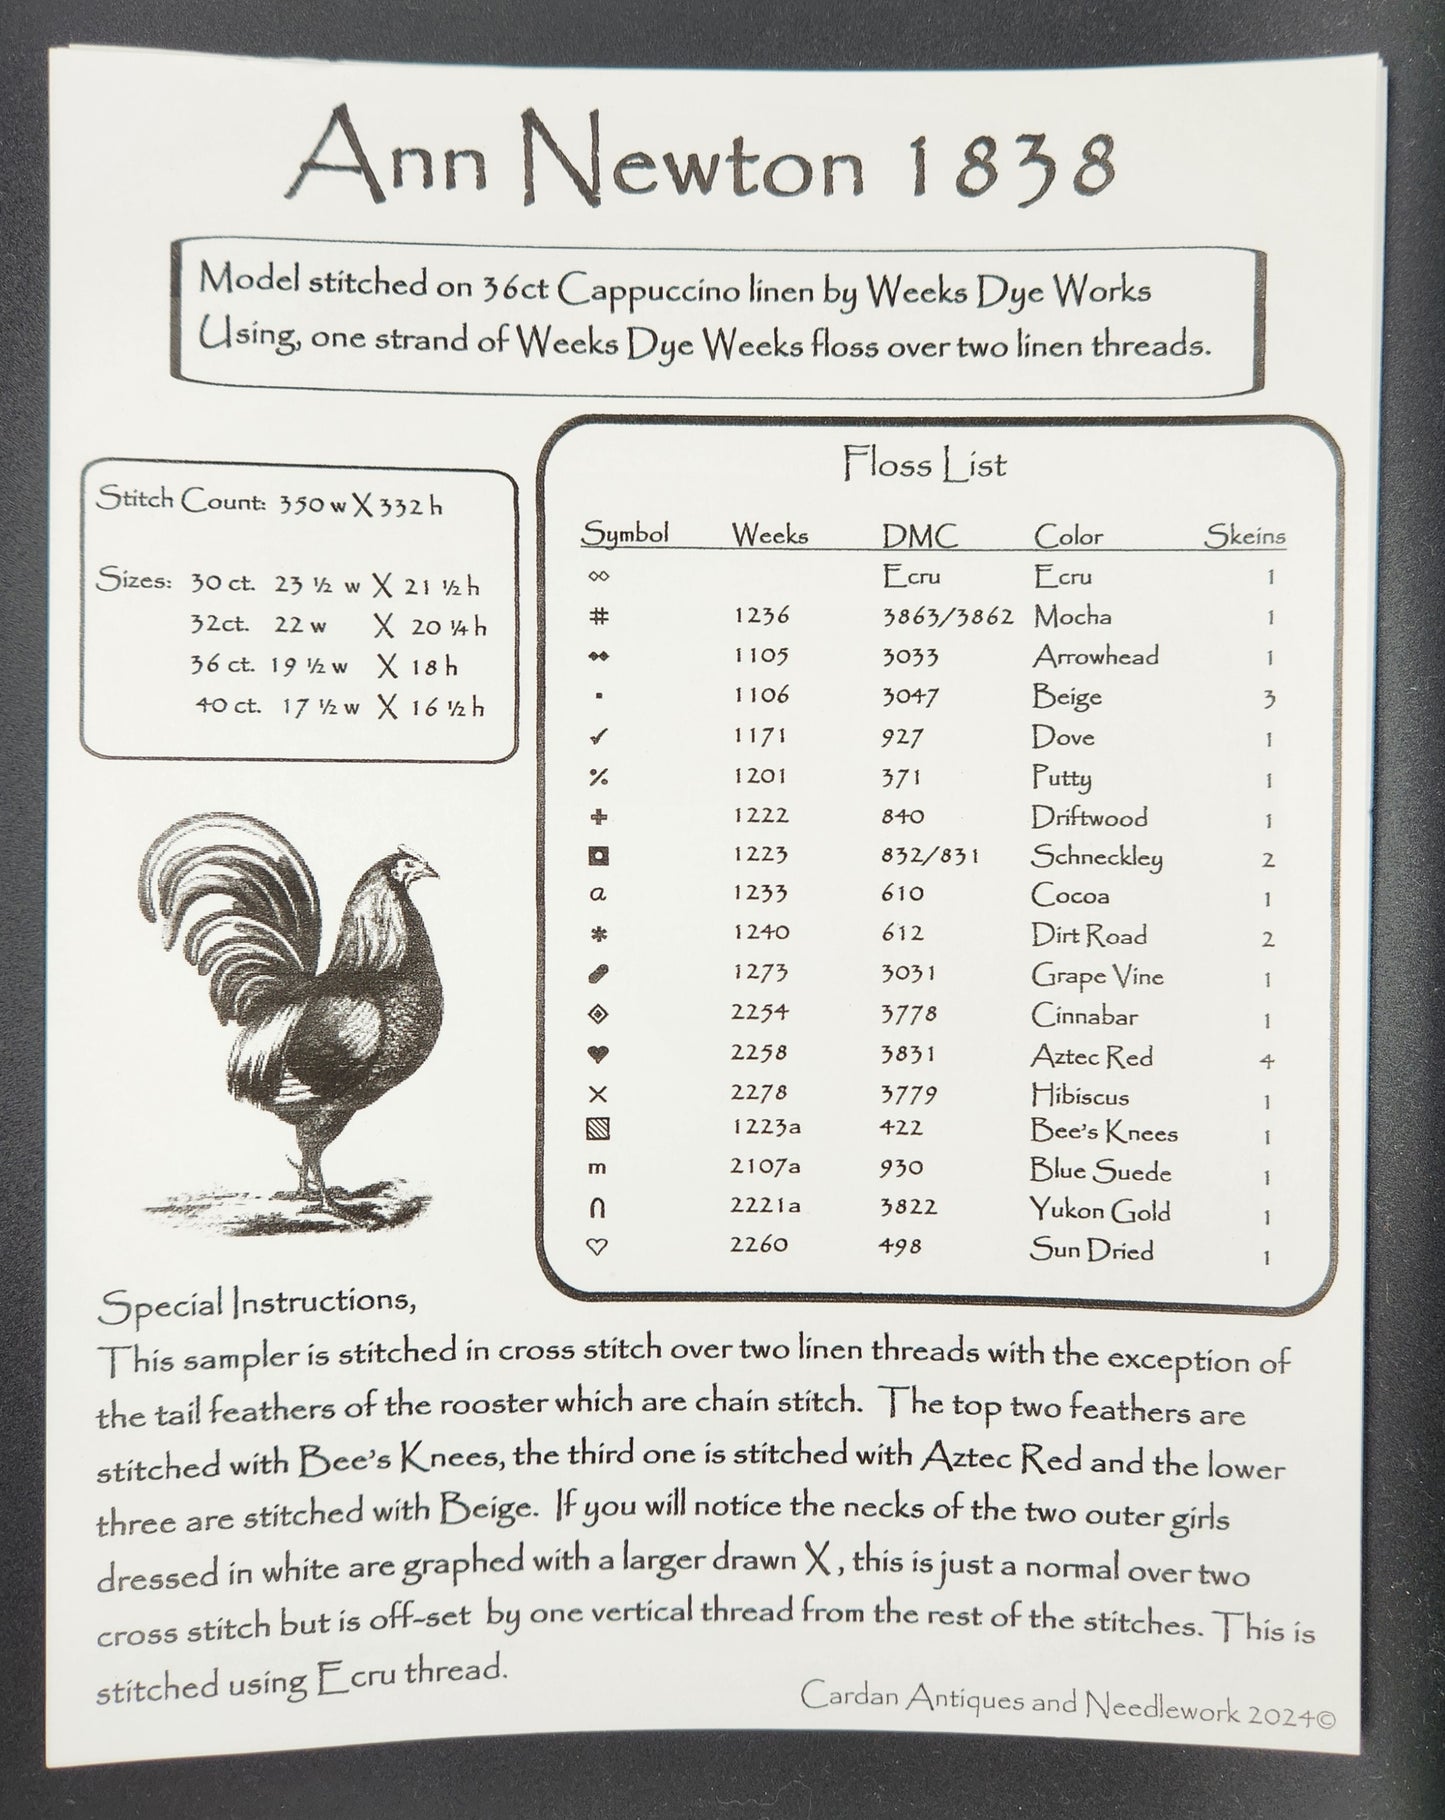 Ann Newton 1838
Model stitched on 36ct Cappuccino linen by Weeks Dye Works
Using, one strand of Weeks Dye Weeks floss over two linen threads.
Stitch Count: 350 w X 332 h
Sizes: 30 ct. 23 ½ w X 21 ½ h
32ct. 22 w X 20 ¼ h
36 ct. 19 ½ w X 18 h
40 ct. 17 ½ w X 16 ½ h
Floss List
Symbol Weeks DMC Color Skeins
Ecru Ecru 1
# 1236 3863/3862 Mocha 1
1105 3033 Arrowhead 1
▪ 1106 3047 Beige 3
✓ 1171 927 Dove 1
% 1201 371 Putty 1
+ 1222 840 Driftwood 1
1223 832/831 Schneckley 2
a 1233 610 Cocoa 1
* 1240 612 Dirt Road 2
1273 3031 Grape Vine 1
2254 3778 Cinnabar 1
♥ 2258 3831 Aztec Red 4
X 2278 3779 Hibiscus 1
1223a 422 Bee's Knees 1
m 2107a 930 Blue Suede 1
∩ 2221a 3822 Yukon Gold 1
♡ 2260 498 Sun Dried 1
Special Instructions,
This sampler is stitched in cross stitch over two linen threads with the exception of
the tail feathers of the rooster which are chain stitch. The top two feathers are
stitched with Bee's Knees, the third one is stitched with Aztec Red and the lower
three are stitched with Beige. If you will notice the necks of the two outer girls
dressed in white are graphed with a larger drawn X, this is just a normal over two
cross stitch but is off-set by one vertical thread from the rest of the stitches. This is
stitched using Ecru thread.
Cardan Antiques and Needlework 2024©